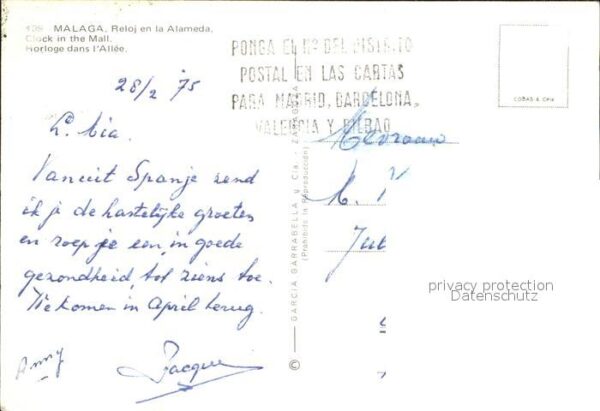 409 - MALAGA, Reloj en la Alameda.
Clock in the Mall.
Horloge dans l'Allée.
PONGA EL Nº DEL DISTRITO
POSTAL EN LAS CARTAS
PARA MADRID, BARCELONA,
VALENCIA Y BILBAO
28/2 '75
L. Cia.
Vanuit Spanje zend
ik je de hartelijke groeten
en roep je een, in goede
gezondheid, tot ziens toe.
We komen in April terug.
Anny
Jacques
© GARCIA GARRABELLA y Cia. - ZARAGOZA
(Prohibida la Reproducción)
Mevrouw
privacy protection
Datenschutz